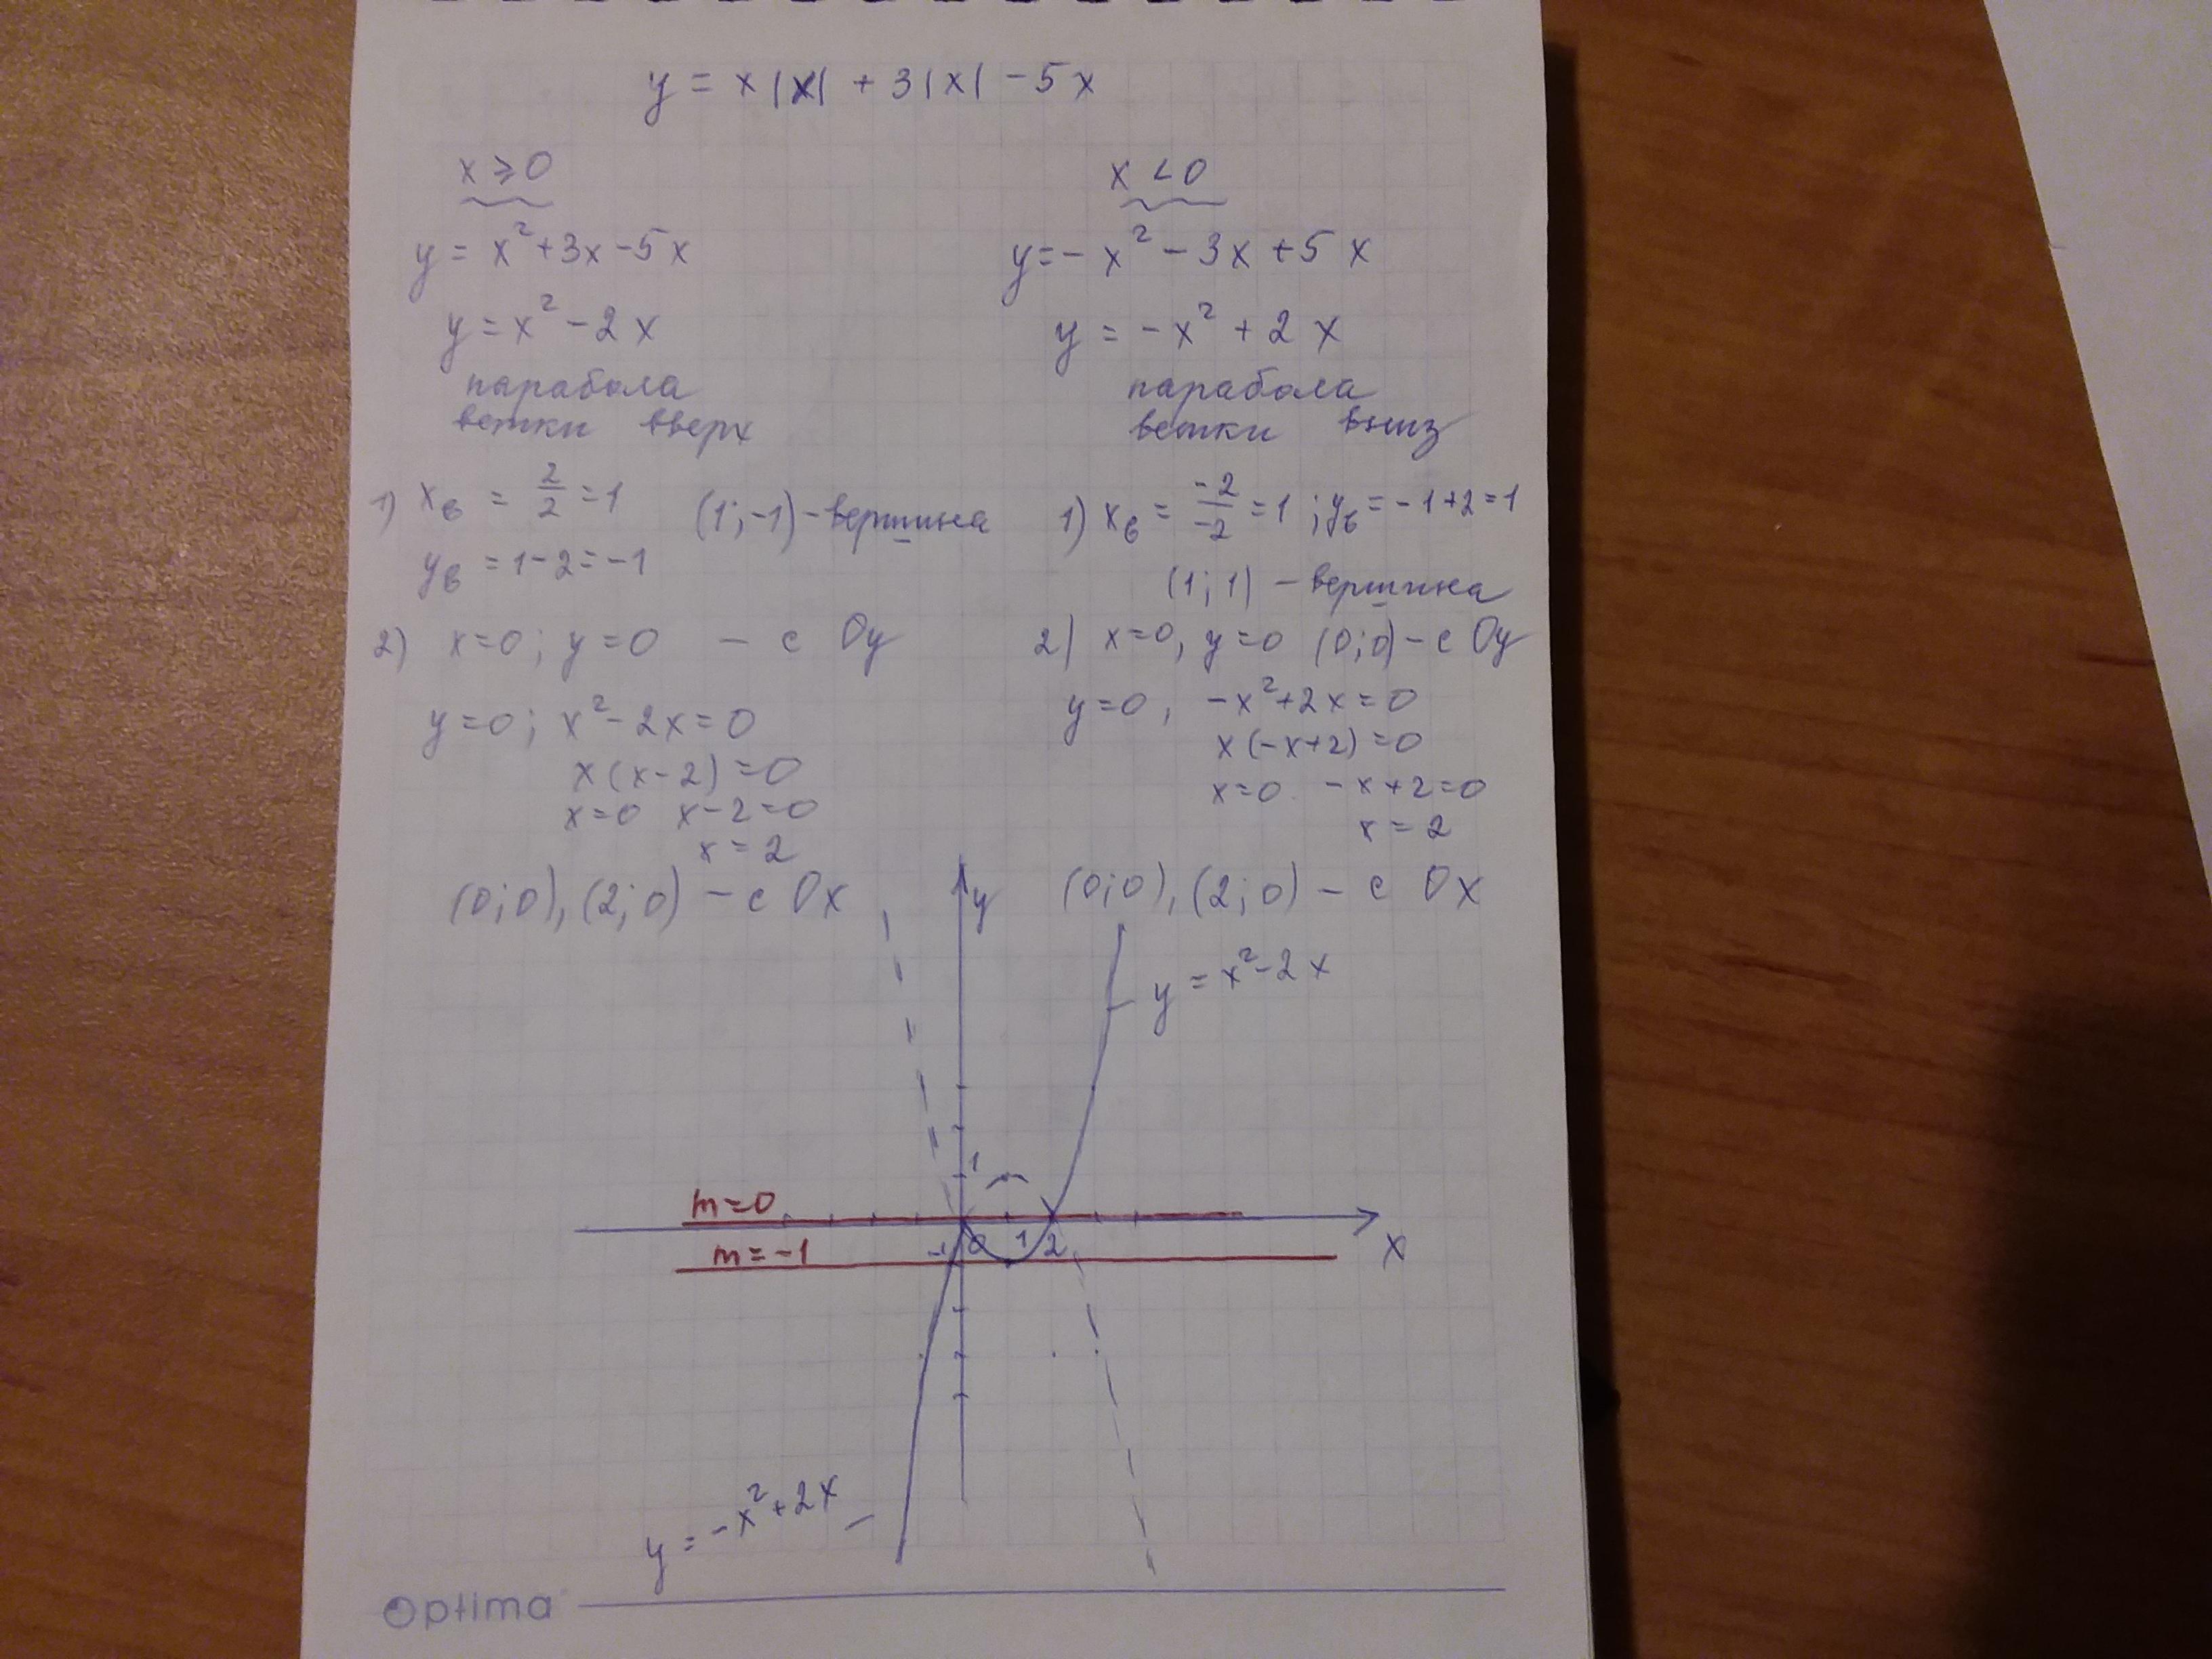 y = x|x| + 3|x| - 5x
x ≥ 0
y = x² + 3x - 5x
y = x² - 2x
парабола
ветки вверх
1) xв = 2/2 = 1 (1; -1) - вершина
yв = 1 - 2 = -1
2) x = 0; y = 0 - с Oy
y = 0; x² - 2x = 0
x(x - 2) = 0
x = 0 x - 2 = 0
x = 2
(0; 0), (2; 0) - с Ox
x < 0
y = - x² - 3x + 5x
y = - x² + 2x
парабола
ветки вниз
1) xв = -2/-2 = 1; yв = - 1 + 2 = 1
(1; 1) - вершина
2) x = 0, y = 0 (0; 0) - с Oy
y = 0, - x² + 2x = 0
x(-x + 2) = 0
x = 0 - x + 2 = 0
x = 2
(0; 0), (2; 0) - с Ox
y
y = x² - 2x
1
m = 0
m = -1
-1 0 1 2
x
y = - x² + 2x
Optima